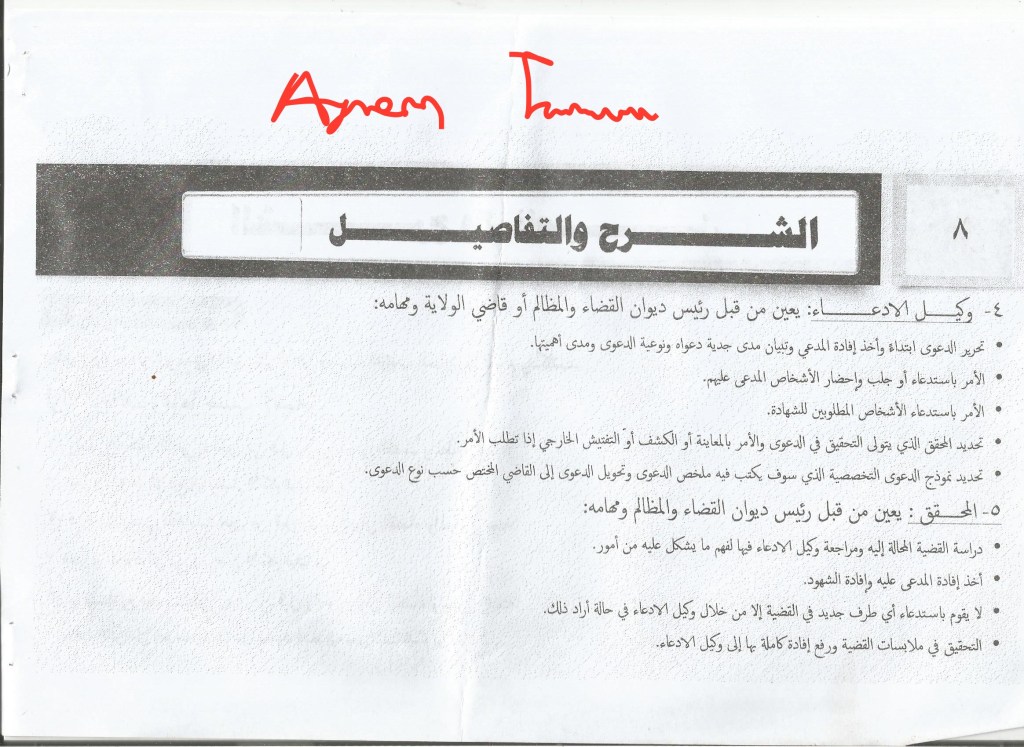 ٨
الشرح والتفاصيل
٤- وكيل الادعاء: يعين من قبل رئيس ديوان القضاء والمظالم أو قاضي الولاية ومهامه:
• تحرير الدعوى ابتداءً وأخذ إفادة المدعي وتبيان مدى جدية دعواه ونوعية الدعوى ومدى أهميتها.
• الأمر باستدعاء أو جلب وإحضار الأشخاص المدعى عليهم.
• الأمر باستدعاء الأشخاص المطلوبين للشهادة.
• تحديد المحقق الذي يتولى التحقيق في الدعوى والأمر بالمعاينة أو الكشف أو التفتيش الخارجي إذا تطلب الأمر.
• تحديد نموذج الدعوى التخصصية الذي سوف يكتب فيه ملخص الدعوى وتحويل الدعوى إلى القاضي المختص حسب نوع الدعوى.
٥- المحقق: يعين من قبل رئيس ديوان القضاء والمظالم ومهامه:
• دراسة القضية المحالة إليه ومراجعة وكيل الادعاء فيها لفهم ما يشكل عليه من أمور.
• أخذ إفادة المدعى عليه وإفادة الشهود.
• لا يقوم باستدعاء أي طرف جديد في القضية إلا من خلال وكيل الادعاء في حالة أراد ذلك.
• التحقيق في ملابسات القضية ورفع إفادة كاملة بها إلى وكيل الادعاء.